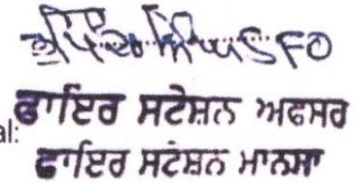 SFO
ਫਾਇਰ ਸਟੇਸ਼ਨ ਅਫਸਰ
al:
ਫਾਇਰ ਸਟੇਸ਼ਨ ਮਾਨਸਾ